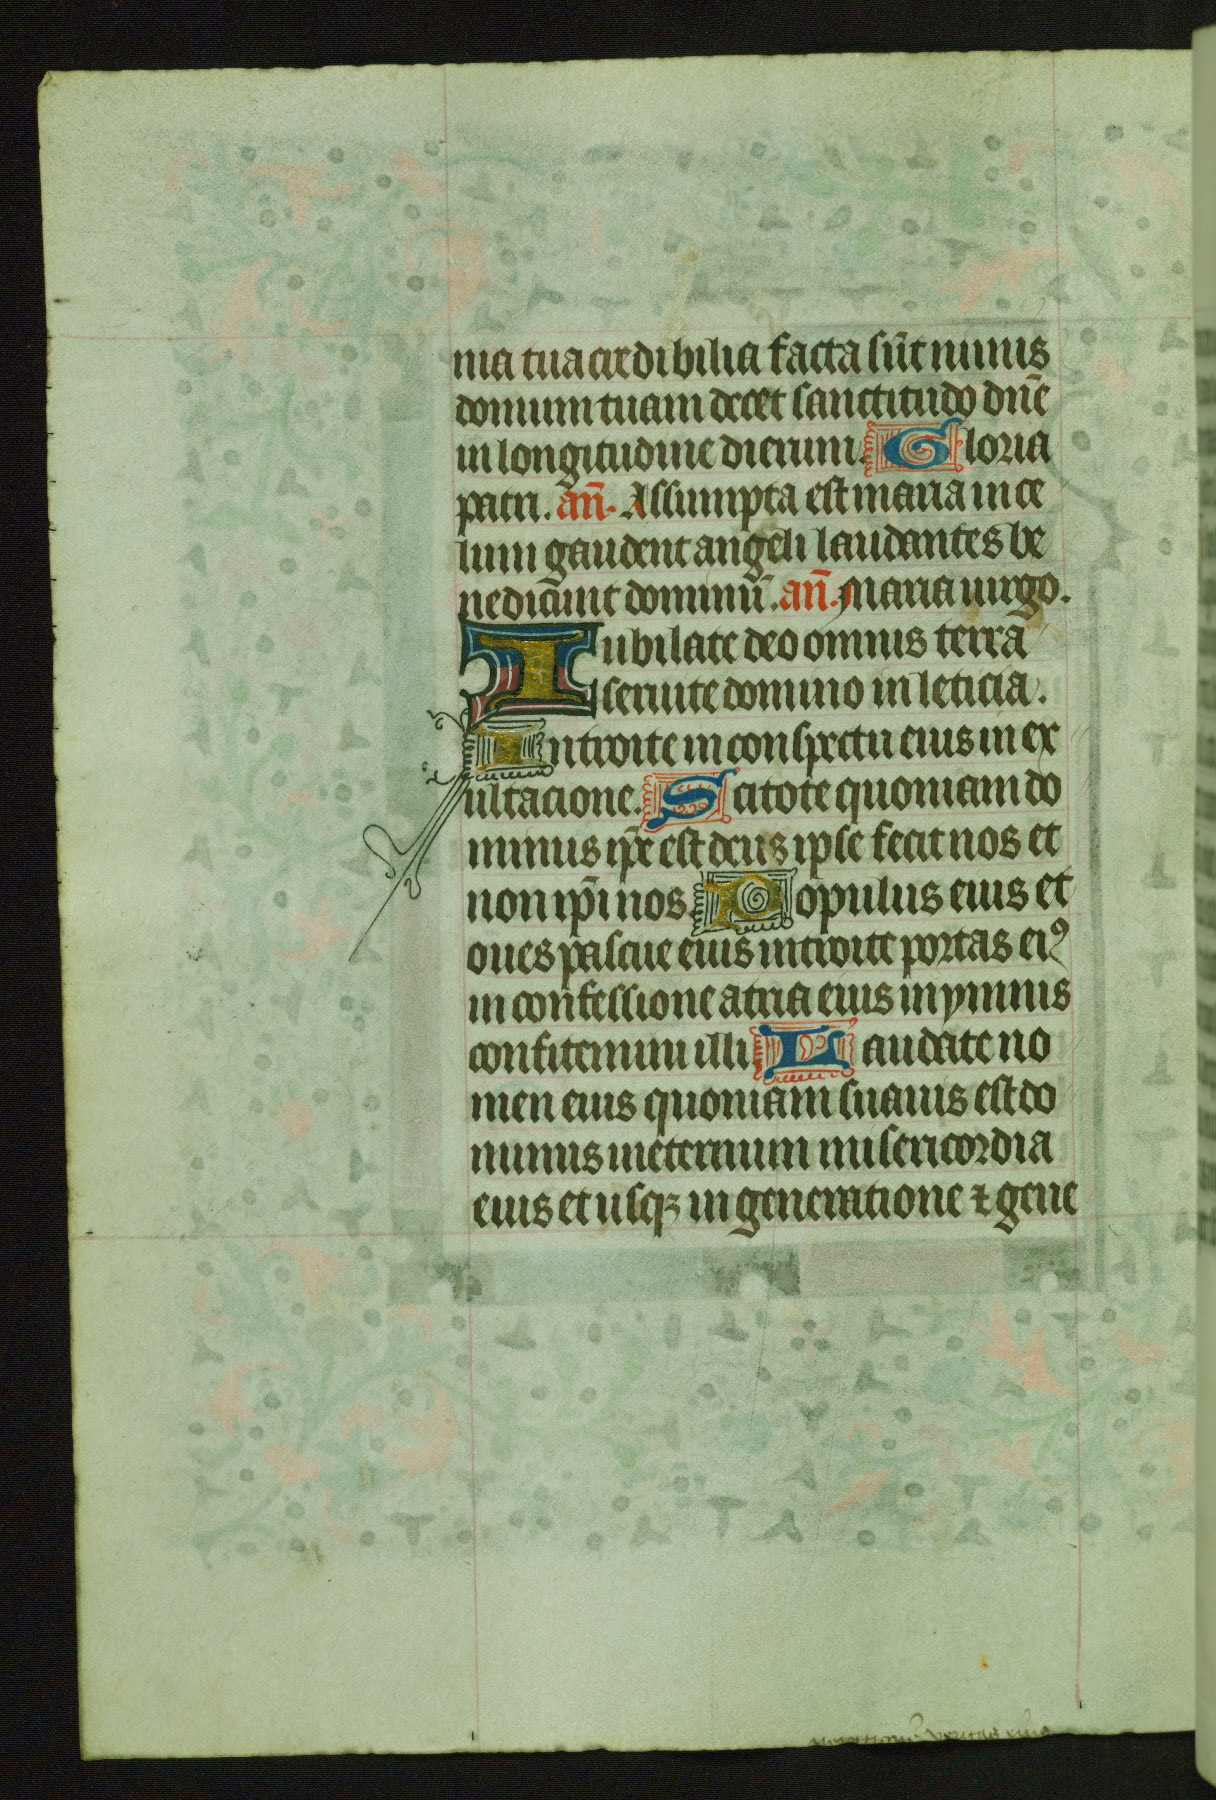 nia tua credibilia facta sūt nimis
domum tuam decet sanctitudo dn̄e
in longitudine dierum. Gloria
patri. an̄. Assumpta est maria in ce
lum gaudent angeli laudantes be
nedicūnt dominū. an̄. Maria uirgo.
Iubilate deo omnis terrā
seruite domino in leticia.
Introite in conspectu eius in ex
ultacione. Scitote quoniam do
minus ip̄e est deus ipse fecit nos et
non ip̄i nos. Populus eius et
oues pascue eius introite portas eiꝰ
in confessione atria eius in ymnis
confitemini illi Laudate no
men eius quoniam suauis est do
minus ineternum misericordia
eius et usqꝫ in generatione ⁊ gene